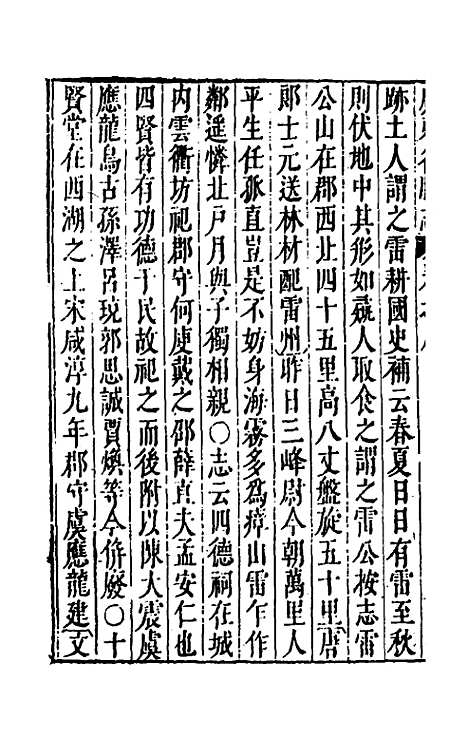 跡土人謂之雷耕國史補云春夏日日有雷至秋
則伏地中其形如彘人取食之謂之雷公按志雷
公山在郡西北四十五里高八丈盤旋五十里唐
郎士元送林材配雷州昨日三峰尉今朝萬里人
平生任孤直豈是不妨身海霧多爲瘴山雷乍作
鄰遥憐北戸月與子獨相親〇志云四德祠在城
内雲衢坊祀郡守何庾戴之邵薛直夫孟安仁也
四賢皆有功德于民故祀之而後附以陳大震虞
應龍烏古孫澤呂琉郭思誠賈煥等今併廢〇十
賢堂在西湖之上宋咸淳九年郡守虞應龍建文